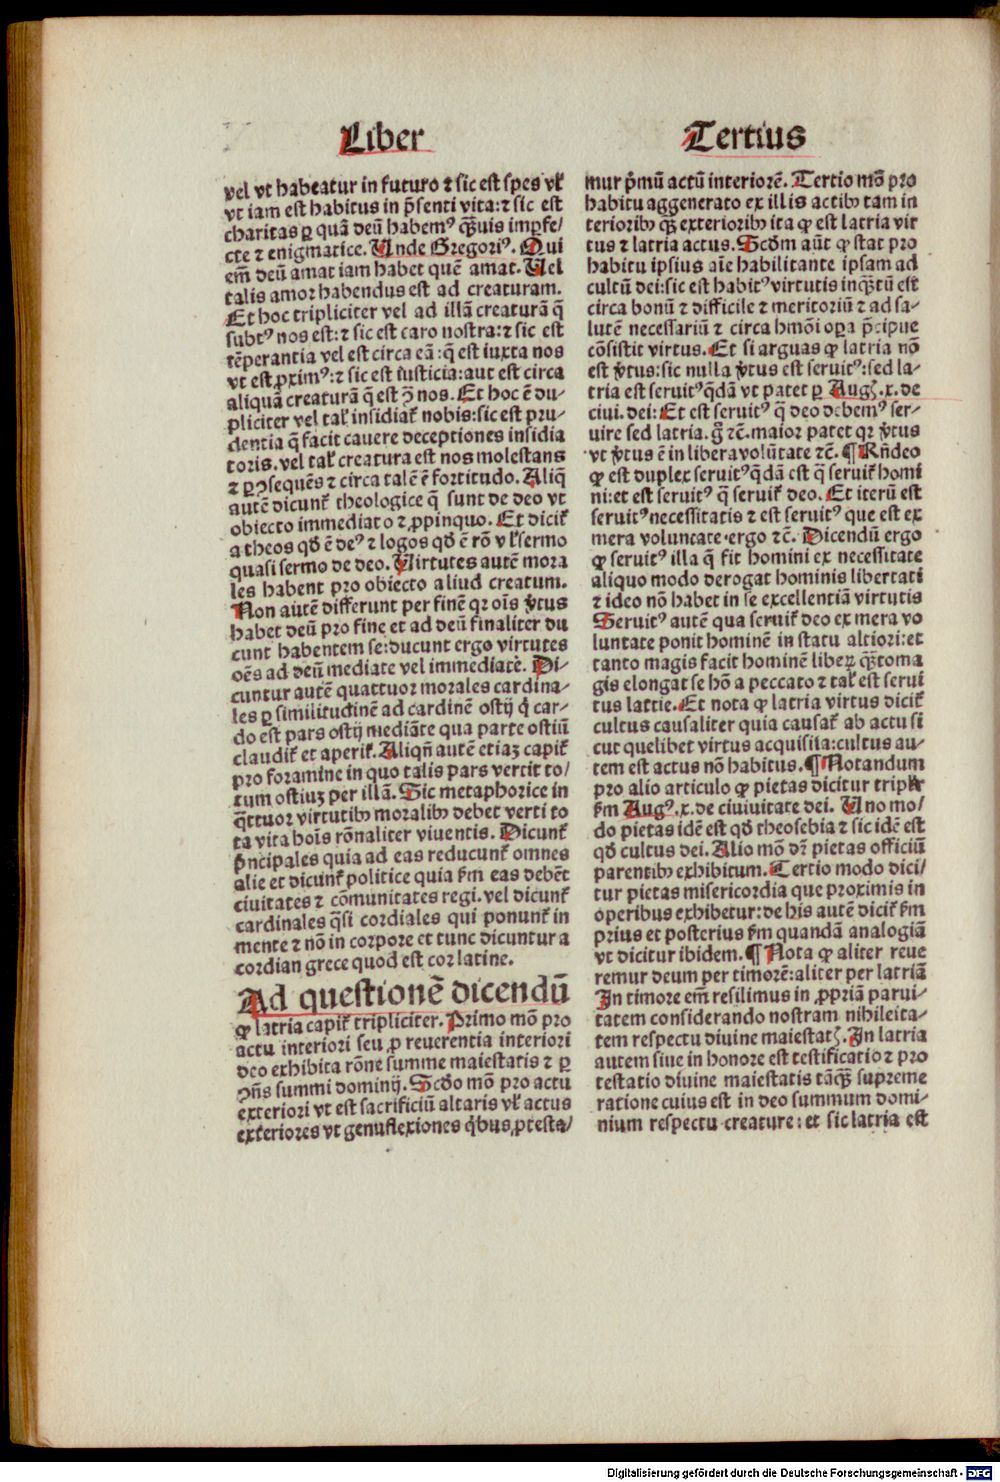 Liber
Tertius
vel vt habeatur in futuro ⁊ sic est spes vł
vt iam est habitus in p̄senti vita: ⁊ sic est
charitas ꝑ quā deū habemꝰ q̄̄uis imꝑfe/
cte ⁊ enigmatice. Unde Gregoriꝰ. Qui
em̄ deū amat iam habet quē amat. Uel
talis amor habendus est ad creaturam.
Et hoc tripliciter vel ad illā creaturā q̄
subtꝰ nos est: ⁊ sic est caro nostra: ⁊ sic est
tēperantia vel est circa eā: q̄ est iuxta nos
vt est ꝓximꝰ: ⁊ sic est iusticia: aut est circa
aliquā creaturā q̄ est ꝯ̄ nos. Et hoc ē du-
pliciter vel tal' insidiat' nobis: sic est pru-
dentia q̄ facit cauere deceptiones insidia
toris. vel tal' creatura est nos molestans
⁊ ꝑꝯsequēs ⁊ circa talē ē fortitudo. Aliq̄
autē dicunt' theologice q̄ sunt de deo vt
obiecto immediato ⁊ ꝓpinquo. Et dicit'
a theos qđ ē deꝰ ⁊ logos qđ ē rō vł sermo
quasi sermo de deo. Virtutes autē mora
les habent pro obiecto aliud creatum.
Non autē differunt per finē qꝛ oīs v̄tus
habet deū pro fine et ad deū finaliter du
cunt habentem se: ducunt ergo virtutes
oēs ad deū mediate vel immediate. Di-
cuntur autē quattuor morales cardina-
les ꝑ similitudinē ad cardinē ostij q̇ car-
do est pars ostij mediāte qua parte ostiū
claudit' et aperit'. Aliqn̄ autē etiaꝫ capit'
pro foramine in quo talis pars vertit to/
tum ostiuꝫ per illā. Sic metaphorice in
q̄ttuor virtutibꝫ moralibꝫ debet verti to
ta vita hoīs rōnaliter viuentis. Dicunt'
p̄ncipales quia ad eas reducunt' omnes
alie et dicunt' politice quia ẜm eas debēt
ciuitates ⁊ cōmunitates regi. vel dicunt'
cardinales q̄si cordiales qui ponunt' in
mente ⁊ nō in corpore et tunc dicuntur a
cordian grece quod est cor latine.
Ad questionē dicendū
ꝙ latria capit' tripliciter. Primo mō pro
actu interiori seu ꝓ reuerentia interiori
deo exhibita rōne summe maiestatis ⁊ ꝑ
ꝯn̄s summi dominij. Scđo mō pro actu
exteriori vt est sacrificiū altaris vł actus
exteriores vt genuflexiones q̇bus ꝓtesta/
mur p̄mū actū interiorē. Tertio mō pro
habitu aggenerato ex illis actibꝫ tam in
terioribꝫ q̄̄ exterioribꝫ ita ꝙ est latria vir
tus ⁊ latria actus. Scđm aūt ꝙ stat pro
habitu ipsius aīe habilitante ipsam ad
cultū dei: sic est habitꝰ virtutis inq̄̄tū est
circa bonū ⁊ difficile ⁊ meritoriū ⁊ ad sa-
lutē necessariū ⁊ circa hmōi oꝑa p̄cipue
cōsistit virtus. Et si arguas ꝙ latria nō
est v̄tus: sic nulla v̄tus est seruitꝰ: sed la-
tria est seruitꝰ q̄dā vt patet ꝑ Aug. x. de
ciui. dei: Et est seruitꝰ q̄ deo debemꝰ ser-
uire sed latria. g̊ ⁊c̄. maior patet qꝛ v̄tus
vt v̄tus ē in libera volūtate ⁊c̄. ¶ Rn̄deo
ꝙ est duplex seruitꝰ q̄dā est q̄ seruit' homi
ni: et est seruitꝰ q̄ seruit' deo. Et iterū est
seruitꝰ necessitatis ⁊ est seruitꝰ que est ex
mera voluntate. ergo ⁊c̄. Dicendū ergo
ꝙ seruitꝰ illa q̄ fit homini ex necessitate
aliquo modo derogat hominis libertati
⁊ ideo nō habet in se excellentiā virtutis
Seruitꝰ autē qua seruit' deo ex mera vo
luntate ponit hominē in statu altiori: et
tanto magis facit hominē liberꝫ q̄̄to ma
gis elongat se hō a peccato ⁊ tal' est serui
tus latrie. Et nota ꝙ latria virtus dicit'
cultus causaliter quia causat' ab actu si
cut quelibet virtus acquisita: cultus au-
tem est actus nō habitus. ¶ Notandum
pro alio articulo ꝙ pietas dicitur tripl'r
ẜm Augꝰ. x. de ciuiuitate dei. Uno mo/
do pietas idē est qđ theosebia ⁊ sic idē est
qđ cultus dei. Alio mō dr̄ pietas officiū
parentibꝫ exhibitum. Tertio modo dici/
tur pietas misericordia que proximis in
operibus exhibetur: de his autē dicit' ẜm
prius et posterius ẜm quandā analogiā
vt dicitur ibidem. ¶ Nota ꝙ aliter reue
remur deum per timorē: aliter per latriā
In timore em̄ resilimus in ꝓpriā parui-
tatem considerando nostram nihileita-
tem respectu diuine maiestatꝭ. In latria
autem siue in honore est testificatio ⁊ pro
testatio diuine maiestatis tāq̄̄ supreme
ratione cuius est in deo summum domi-
nium respectu creature: et sic latria est
Digitalisierung gefördert durch die Deutsche Forschungsgemeinschaft - DFG